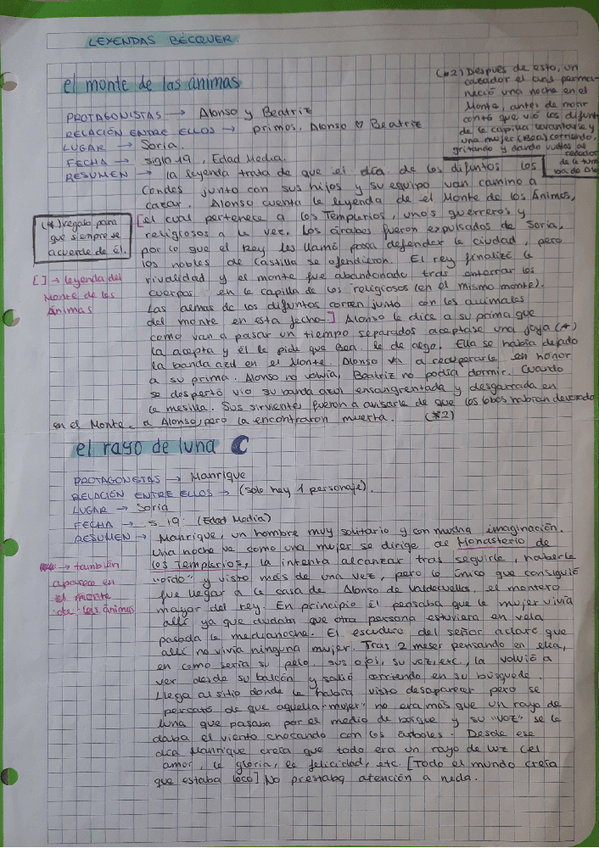 LEYENDAS BÉCQUER
el monte de las ánimas
(*2) Después de esto, un
cazador el cual perma-
neció una noche en el
Monte, antes de morir
contó que vió los difuntos
de la capilla levantarse y
una mujer (Bea) corriendo,
gritando y dando vueltas al
PROTAGONISTAS → Alonso y Beatriz
RELACIÓN ENTRE ELLOS → primos, Alonso ♡ Beatriz
LUGAR → Soria.
FECHA → siglo 19, Edad Media.
RESUMEN → la leyenda trata de que el día de los difuntos los
Condes junto con sus hijos y su equipo van camino a
cazar. Alonso cuenta la leyenda del Monte de las Ánimas,
(*) regalo para
que siempre se
acuerde de él.
[el cual pertenece a los Templarios, unos guerreros y
religiosos a la vez. Los árabes fueron expulsados de Soria,
por lo que el Rey les llamó para defender la ciudad, pero
los nobles de Castilla se ofendieron. El rey finalizó la
[ ] → leyenda del
Monte de las
Ánimas
rivalidad y el monte fue abandonado tras enterrar los
cuerpos en la capilla de los religiosos (en el mismo monte).
Las almas de los difuntos corren junto con los animales
del monte en esta fecha.] Alonso le dice a su prima que
como van a pasar un tiempo separados aceptase una joya (*)
la acepta y él le pide que Bea. le de algo. Ella se había dejado
la banda azul en el Monte. Alonso va a recuperarla en honor
a su prima. Alonso no volvía, Beatriz no podía dormir. Cuando
se despertó vio su banda azul ensangrentada y desgarrada en
la mesilla. Sus sirvientes fueron a avisarla de que los lobos habían devorado
en el Monte a Alonso, pero la encontraron muerta. (*2)
el rayo de luna
PROTAGONISTAS → Manrique
RELACIÓN ENTRE ELLOS → (solo hay 1 personaje).
LUGAR → Soria
FECHA → s. 19. (Edad Media)
RESUMEN → Manrique, un hombre muy solitario y con mucha imaginación.
Una noche ve como una mujer se dirige al Monasterio de
→ también
aparece en
el monte
de las ánimas
los Templarios, la intenta alcanzar tras seguirla, haberle
"oído" y visto más de una vez, pero lo único que consiguió
fue llegar a la casa de Alonso de Valdecuellos, el montero
mayor del rey. En principio él pensaba que la mujer vivía
allí ya que dudaba que otra persona estuviera en vela
pasada la medianoche. El escudero del señor aclaró que
allí no vivía ninguna mujer. Tras 2 meses pensando en ella,
en como sería su pelo, sus ojos, su voz, etc, la volvió a
ver desde su balcón y salió corriendo en su búsqueda.
Llega al sitio donde la había visto desaparecer pero se
percató de que aquella "mujer" no era más que un rayo de
luna que pasaba por el medio de bosque y su "voz" se la
daba el viento chocando con los árboles. Desde ese
día Manrique creía que todo era un rayo de luz (el
amor, la gloria, la felicidad, etc. [Todo el mundo creía
que estaba loco] No prestaba atención a nada.